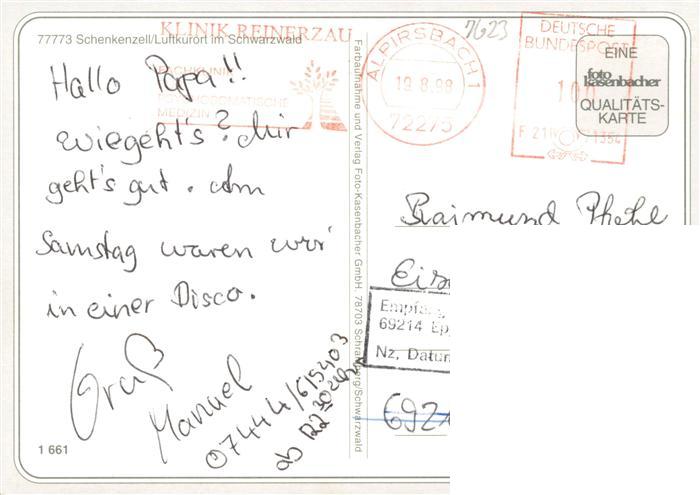 77773 Schenkenzell/Luftkurort im Schwarzwald
KLINIK REINERZAU
FACHKLINIK
PSYCHOSOMATISCHE
MEDIZIN
Hallo Papa!!
Wiegeht's? Mir
geht's gut. Am
Samstag waren wir
in einer Disco.
Gruß
Manuel
07444/615403
ab
1 661
Farbaufnahme und Verlag Foto-Kasenbacher GmbH. 78703 Schramberg/Schwarzwald
7623
ALPIRSBACH 1
19.8.98
72275
DEUTSCHE
BUNDESPOST
100
EINE
foto
kasenbacher
QUALITÄTS-
KARTE
Raimund
Empfäng
69214 Ep
Nz, Datum
692